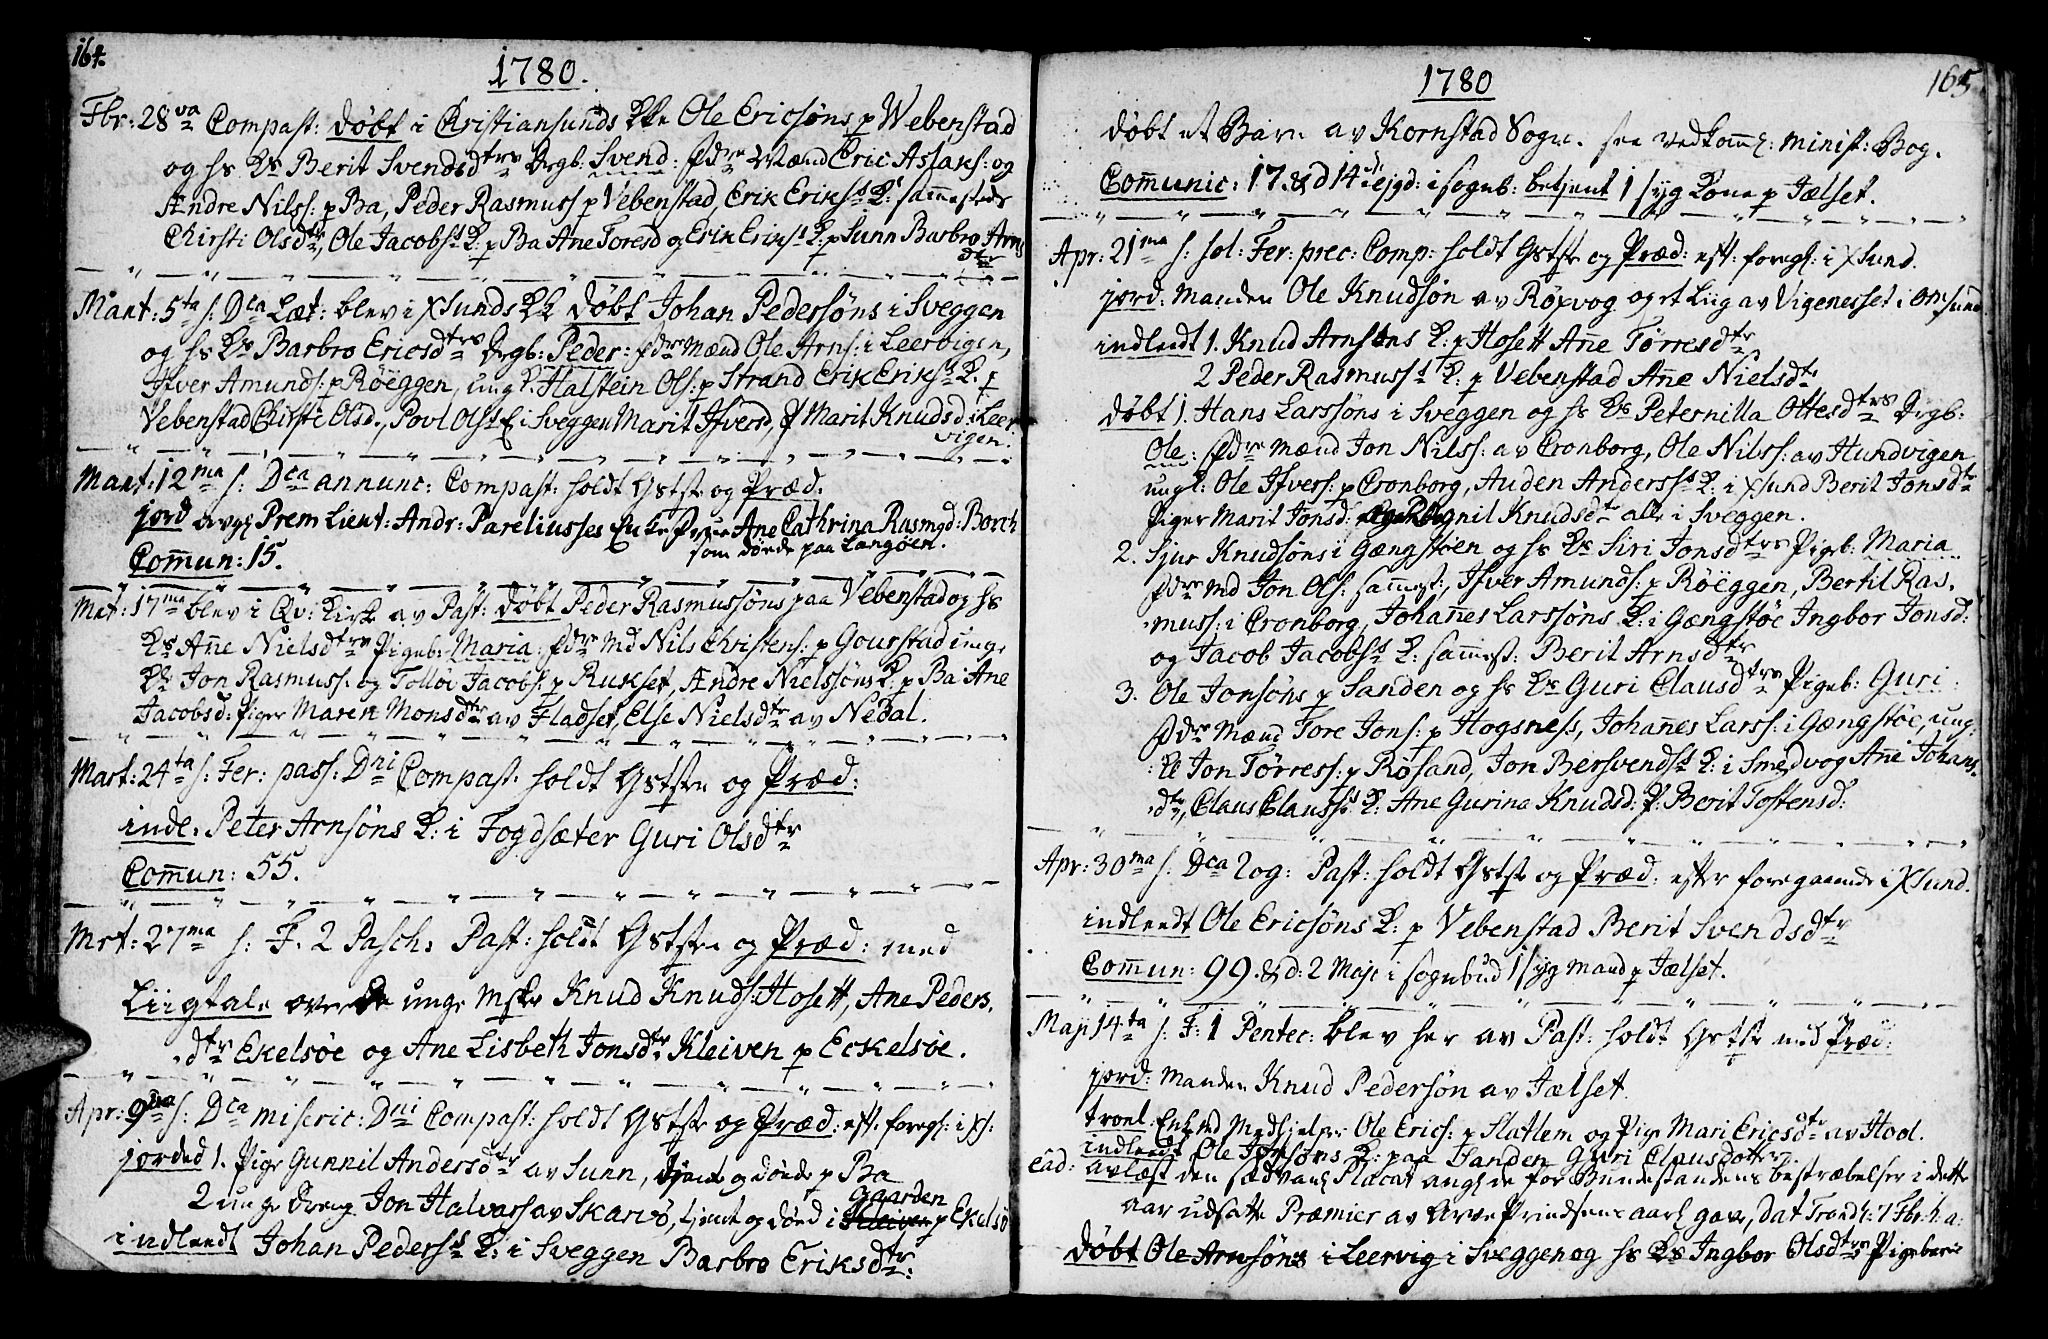 164.
1780.
Fbr: 28va Compast: døbt i Christiansunds Kke Ole Ericsøns p Webenstad
og hs Ks Berit Svendsdtrs Drgb: Svend: fdre Mænd Eric Aslaks: og
Andre Nilss: p Ba, Peder Rasmuss p Vebenstad, Erik Erikss K: sammesteds
Chirsti Olsdtr, Ole Jacobss K: p Ba Ane Toresd og Erik Eriks K: p Sunn Barbro Arns
dtr
Mart: 5ta s: Dca Læt: blev i XSunds Kk døbt Johan Pedersøns i Sveggen
og hs Ks Barbro Ericsdtrs Drgb: Peder: fdre Mænd Ole Arns: i Leervigen,
Ifver Amunds: p Røeggen, ung K. Halstein Ols: p Strand Erik Erikss K. p
Vebenstad Chirsti Olsd., Povl Olss K i Sveggen Marit Ifversd, P Marit Knudsd: Leer
vigen:
Mart: 12ma s: Dca annunc: Compast: holdt Gstste og Præd:
jord avgl Prem Lieut: Andr: Pareliusses Enke Ane Cathrina Rasmgd: Borch
som døede paa Langøen.
Comun: 15.
Mrt: 17ma blev i Qv: Kirk av Past: døbt Peder Rasmussøns paa Vebenstad og hs
Ks Ane Nielsdtrs Pigeb: Maria: fdre Md Nils Christens: p Gourstad unge
Ke Jon Rasmuss: og Tolloi Jacobs: p Rukset, Andre Nielssøns K: p Ba Ane
Jacobsd: Piger Maren Monsdtr av Fladset, Else Nielsdtr av Nedal.
Mart: 24ta s: Fer: pass: Dni Compast: holdt Gstste og Præd:
indl. Peter Arnsøns K: i Fogdsæter Guri Olsdtr
Comun: 55.
Mrt: 27ma s: F. 2 Pasch: Past: holdt Gstste og Præd: med
Liigtale over unge Msker Knud Knuds: Hosett, Ane Peders.
dtr Ekelsøe og Ane Lisbeth Jonsdtr Kleiven p Eckelsøe.
Apr: 9na s: Dca miseric: Dni Compast: holdt Gstste og Præd: eft: foregl: i XS:
jorded 1. Pige Gunnil Andersdtr av Sunn, tjent og døede p Ba
2 unge dreng Jon Halvars av Skarvø, tjent og døed i Kleiven p Ekelsø
Gaarden
indleedt Johan Pederss K: i Sveggen Barbro Eriksdtr:
1780
165
døbt et Barn av Kornstad Sogn. see vedkomm: minist: Bog.
Comunic: 17. & d 14 ejgd: i sogneb: betjent 1 syg Kone p Jælset.
Apr: 21ma s: sol: Fer: prec: Comp: holdt Gstste og Præd: eft: foregl: i XSund.
jord: Manden Ole Knudsøn av Røxvog og et Liig av Vigeneset i Omsund
indleedt 1. Knud Arnsøns K: p Hosett Ane Tørresdtr
2 Peder Rasmuss K: p Vebenstad Ane Nielsdtr
døbt 1. Hans Larssøns i Sveggen og hs Ks Peternilla Ottesdtrs Drgb:
Ole: fdre Mænd Jon Nilss: av Cronborg, Ole Nilss: av Hundvigen
ungk: Ole Ifvers: p Cronborg, Auden Anderss K: i XSund Berit Jonsdtr
Piger Marit Jonsd: Ragnil Knudsdtr alle i Sveggen.
2. Sjur Knudsøns i Gængstøen og hs Ks Siri Jonsdtrs Pigeb: Maria
fdre Md Jon Ols: sammest:, Ifver Amunds: p Røeggen, Bertil Ras,
muss: i Cronborg, Johanes Larssøns K: i Gængstøe Ingbor Jonsd:
og Jacob Jacobss K: sammest: Berit Arnsdtr
3. Ole Jonsøns p Sanden og hs Ks Guri Clausdtrs Pigeb: Guri
fdre Mænd Tore Jons: p Hogsness, Johanes Larss: i Gængstøe, ung:
K Jon Tørress: p Røsand, Jon Bersvends K: i Smedvog Ane Johans.
dtr, Claus Clauss K: Ane Gurina Knudsd: P: Berit Tostensd:
Apr: 30ma s. Dca Rog: Past: holdt Gstste og Præd: efter foregaaende i XSund.
indleedt Ole Ericsøns K: p Vebenstad Berit Svendsdtr
Comun: 99. & d: 2 Maje i sognebud 1 syg mand p Jælset.
Maj 14ta s: F: 1 Pentec: blev her av Past: holdt Gstste med Præd:
jord: Manden Knud Pedersøn av Jælset.
trol. Enkemd Medhjelper Ole Erics: p Slatlem og Pige Mari Ericsdtr av Hool.
indleedt Ole Jonsøns K: paa Sanden Guri Clausdotter.
ead: avlæst den sædvanl Placat angl de for Bundestandens bestræbelser i dette
aar udsatte Præmier av Arve Prindsens aarl gave, dat Trondh: 1 Fbr: h: a:
døbt Ole Arnsøns i Leervig i Sveggen og hs Ks Ingbor Olsdtrs Pigebarn